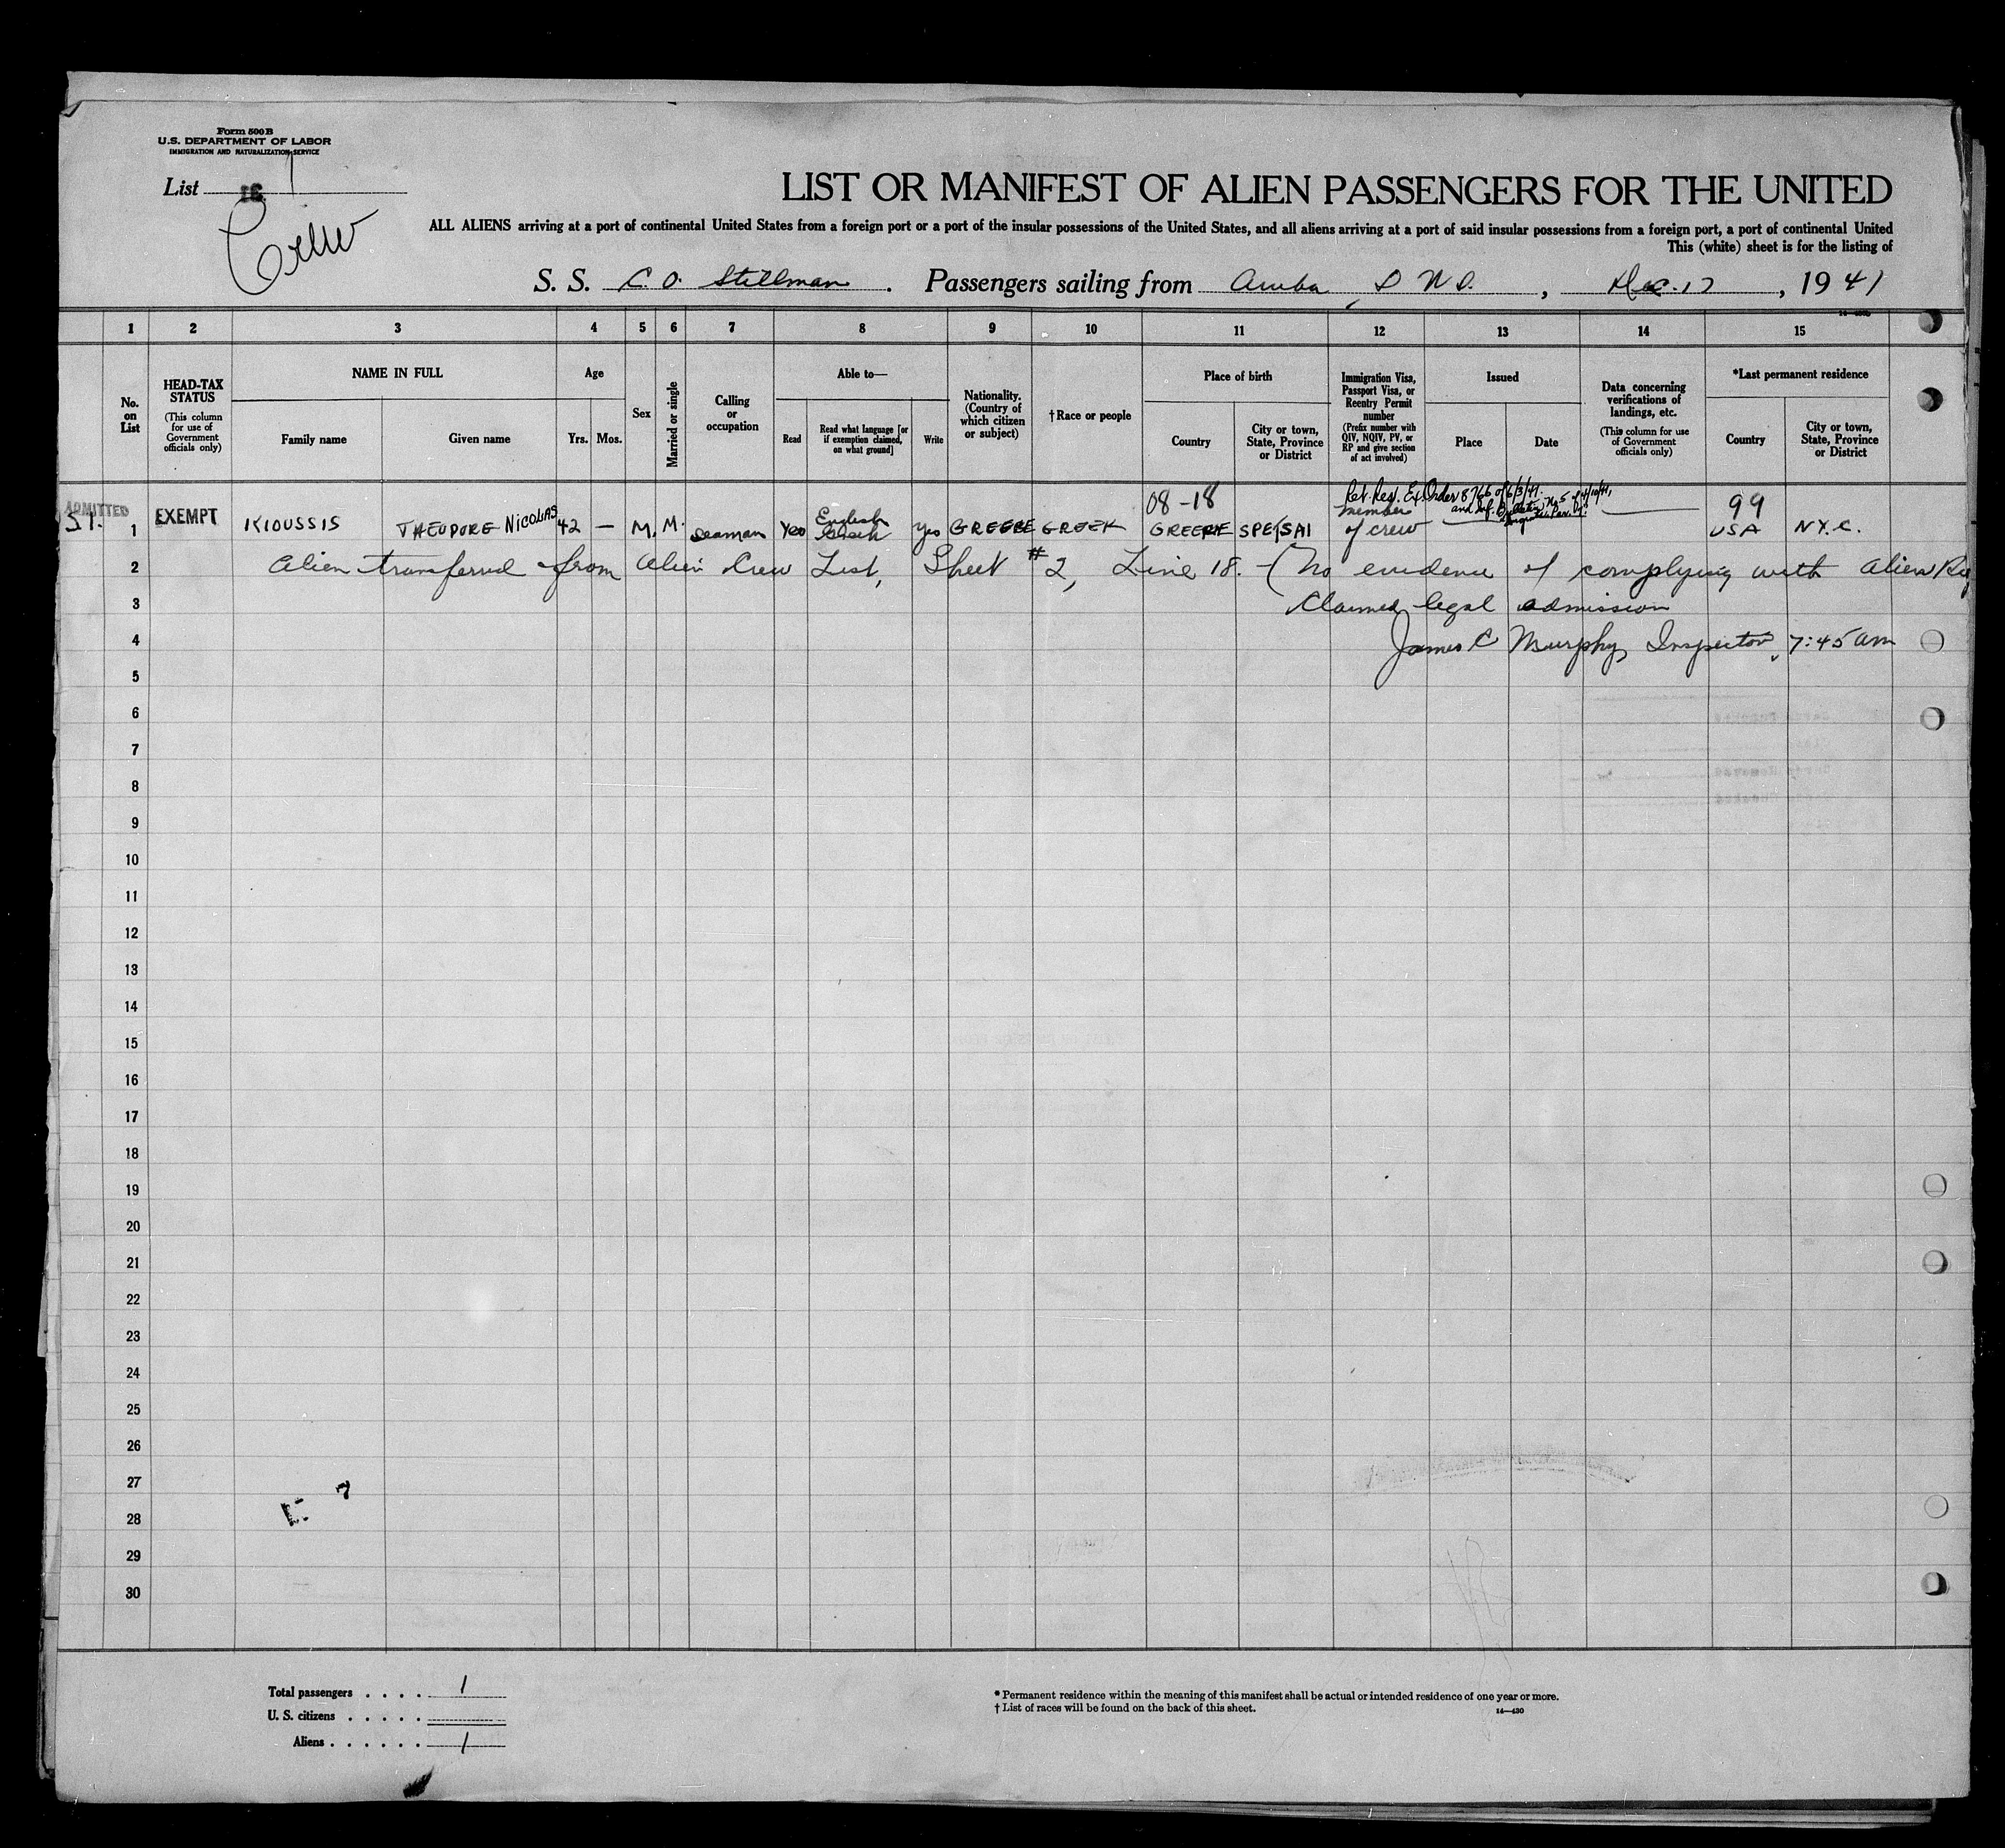 Form 500 B
U.S. DEPARTMENT OF LABOR
IMMIGRATION AND NATURALIZATION SERVICE
List 16 1
Crew
LIST OR MANIFEST OF ALIEN PASSENGERS FOR THE UNITED
ALL ALIENS arriving at a port of continental United States from a foreign port or a port of the insular possessions of the United States, and all aliens arriving at a port of said insular possessions from a foreign port, a port of continental United
This (white) sheet is for the listing of
S. S. C. O. Stillman . Passengers sailing from Aruba, D W I. , Dec. 17 , 19 41
1 2 3 4 5 6 7 8 9 10 11 12 13 14 15
No. on List
HEAD-TAX STATUS
(This column for use of Government officials only)
NAME IN FULL
Family name Given name
Age
Yrs. Mos.
Sex
Married or single
Calling or occupation
Able to—
Read
Read what language [or if exemption claimed, on what ground]
Write
Nationality. (Country of which citizen or subject)
†Race or people
Place of birth
Country
City or town, State, Province or District
Immigration Visa, Passport Visa, or Reentry Permit number
(Prefix number with QIV, NQIV, PV, or RP and give section of act involved)
Issued
Place Date
Data concerning verifications of landings, etc.
(This column for use of Government officials only)
*Last permanent residence
Country
City or town, State, Province or District
ADMITTED
08-18
Ex. Order 8766 of 6/3/41.
99
1 EXEMPT KIOUSSIS THEODORE NICOLAS 42 — M. M. Seaman Yes English Greek Yes GREECE GREEK GREECE SPETSAI member of crew USA N.Y.C.
2 Alien transferred from Alien Crew List, Sheet #2, Line 18. - (No evidence of complying with Alien Reg
3 Claimed legal admission
4 James C Murphy, Inspector, 7:45 am
5
6
7
8
9
10
11
12
13
14
15
16
17
18
19
20
21
22
23
24
25
26
27
28
29
30
Total passengers . . . . 1
U. S. citizens . . . . .
Aliens . . . . . . 1
* Permanent residence within the meaning of this manifest shall be actual or intended residence of one year or more.
† List of races will be found on the back of this sheet.
14—430